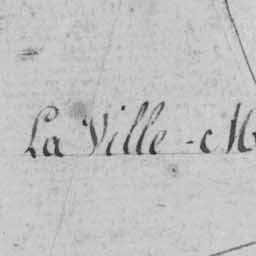 La Ville-M